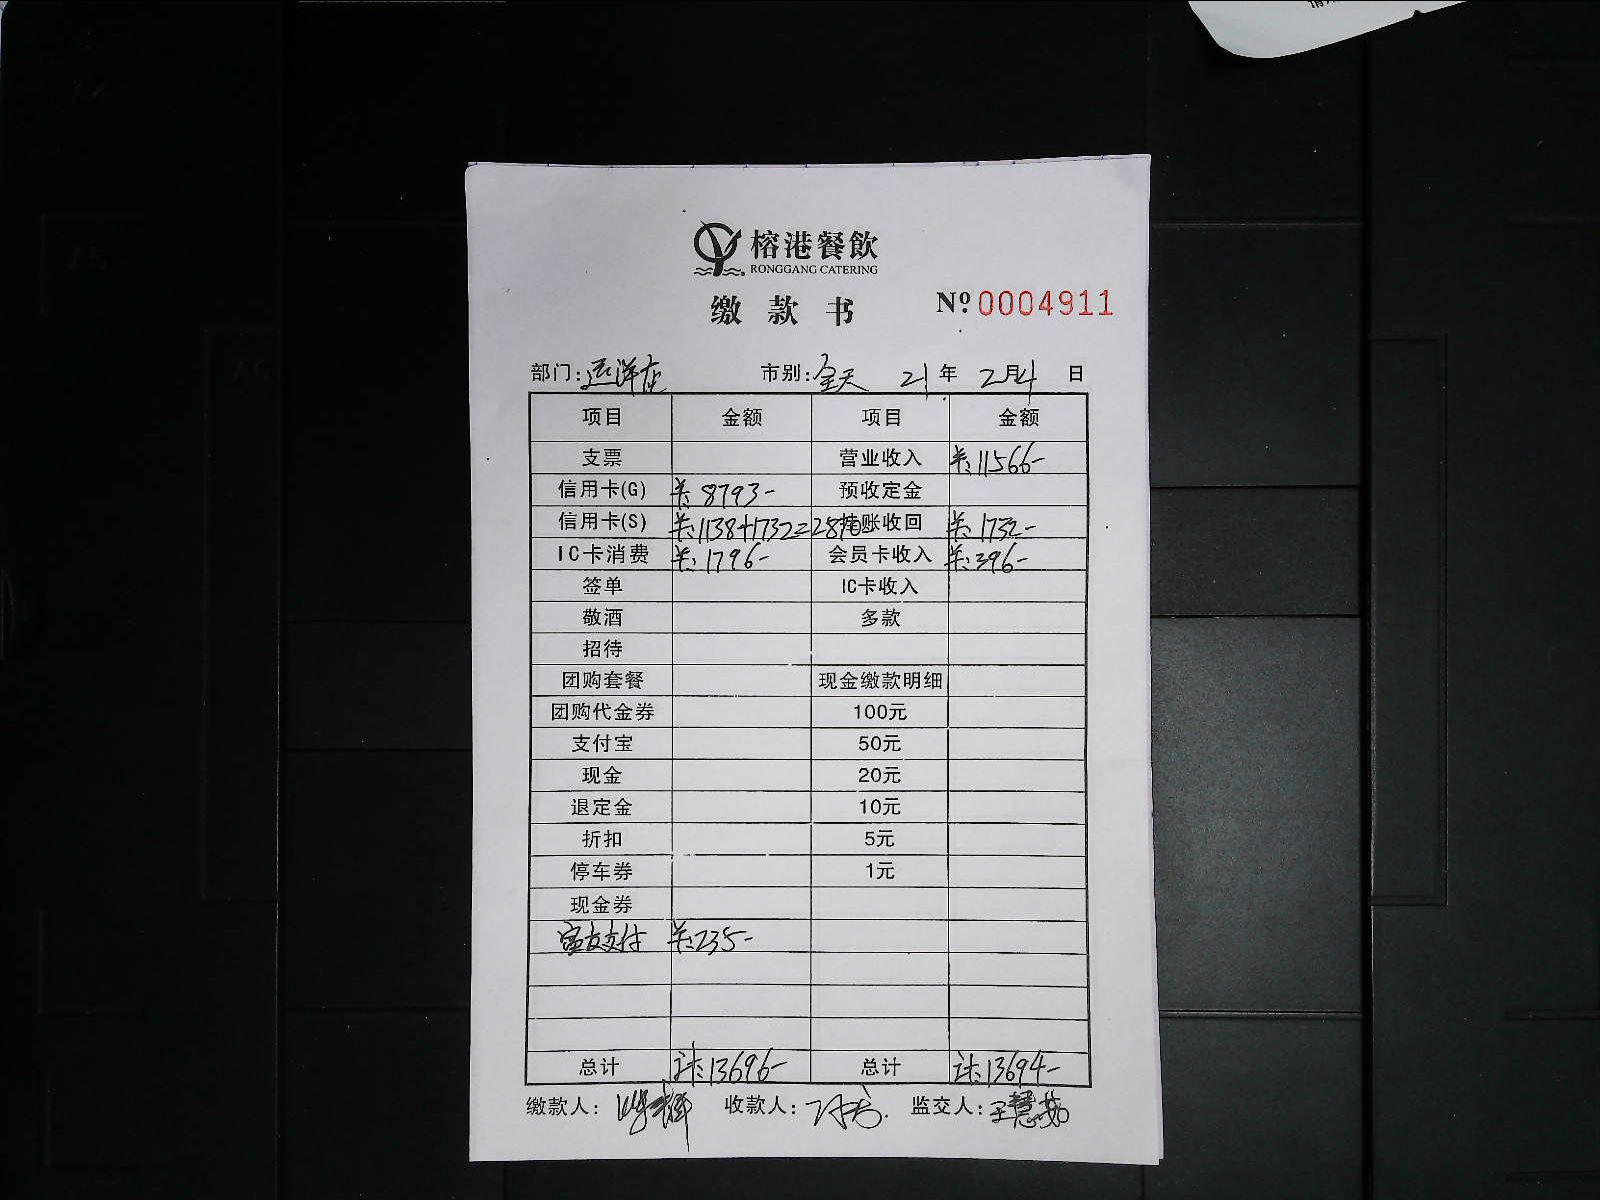 榕港餐飲
RONGGANG CATERING
缴款书 Nº 0004911
部门:远洋店 市别:全天 21年2月4日
项目 金额 项目 金额
支票 营业收入 羊:11566-
信用卡(G) 羊:8793- 预收定金
信用卡(S) 羊:1138+1732=2870 挂账收回 羊:1732-
IC卡消费 羊:1796- 会员卡收入 羊:396-
签单 IC卡收入
敬酒 多款
招待
团购套餐 现金缴款明细
团购代金券 100元
支付宝 50元
现金 20元
退定金 10元
折扣 5元
停车券 1元
现金券
支付 羊:235-
总计 计:13696- 总计 计:13694-
缴款人: 收款人: 监交人:王慧茹